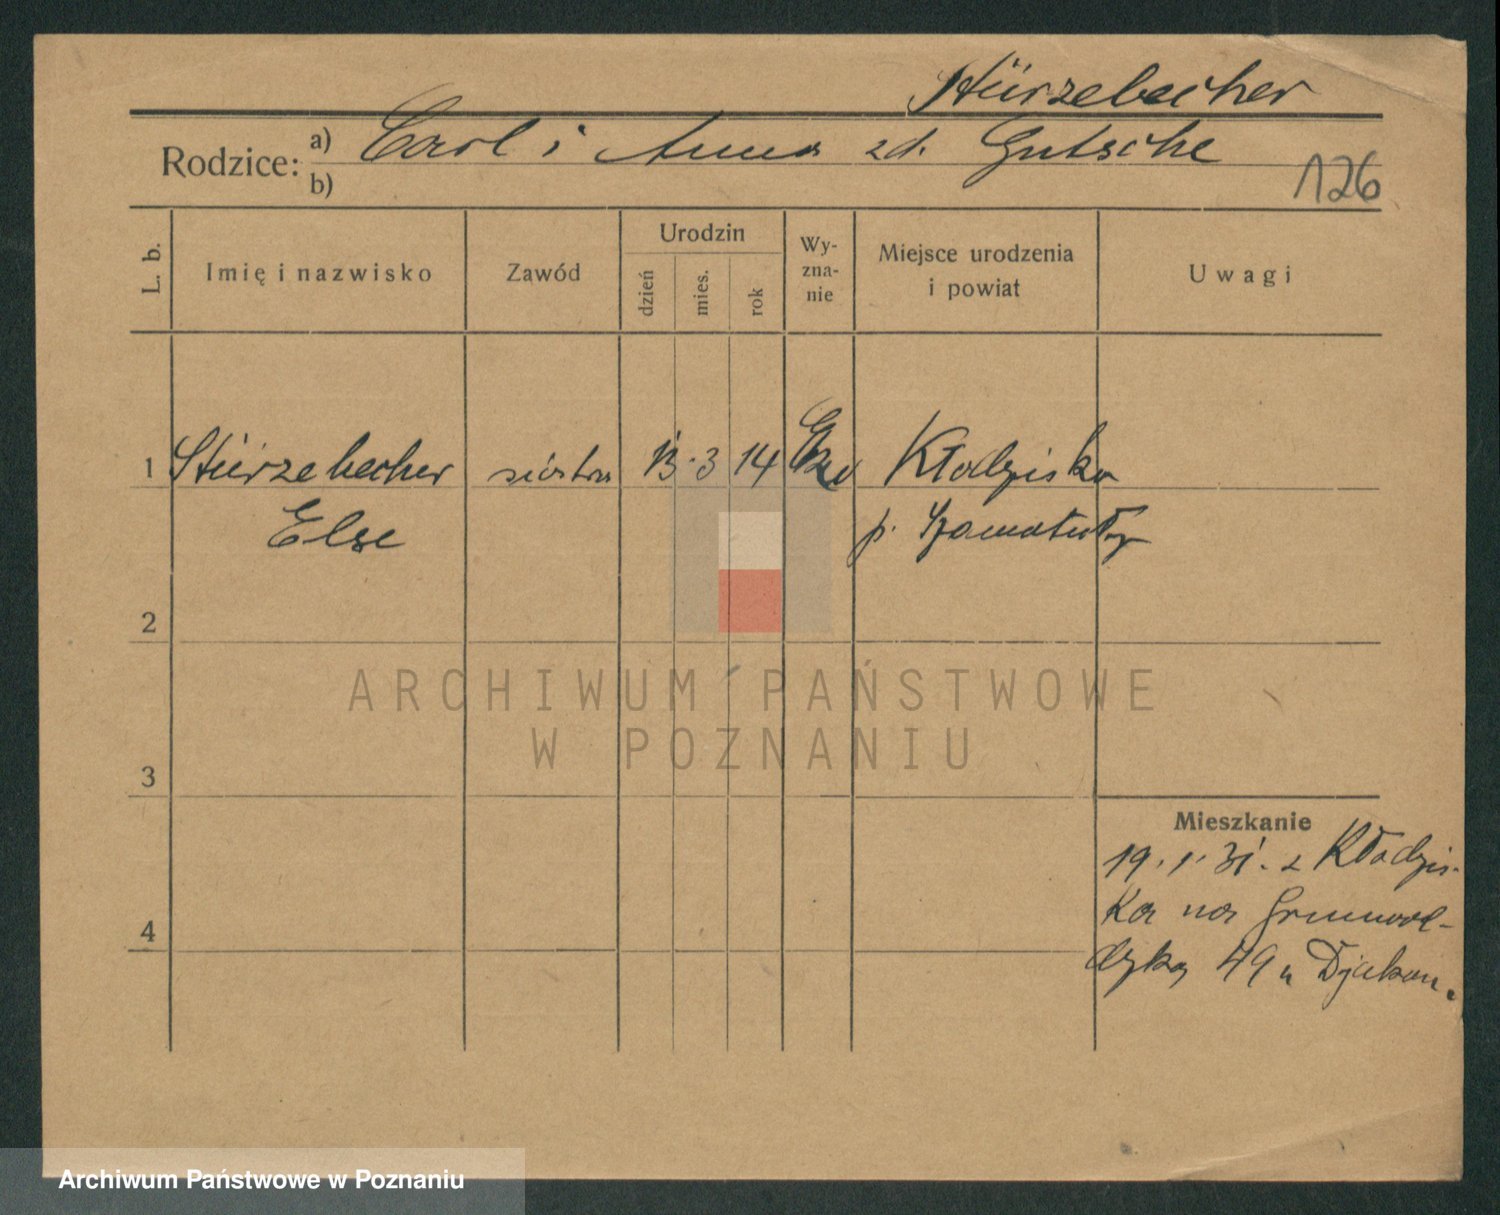 Stürzebecher
Rodzice: a) Carl i Anna zd. Gutsche
b)
126
L. b. Imię i nazwisko Zawód Urodzin dzień mies. rok Wyznanie Miejsce urodzenia i powiat Uwagi
1 Stürzebecher siostra 13 3 14 Ew Kłodzisko
Else p. Szamotuły
2
ARCHIWUM PAŃSTWOWE
W POZNANIU
3
Mieszkanie
19.1.31. z Kłodzis-
ka na Grunwal-
4
dzką 49 u Djakon.
Archiwum Państwowe w Poznaniu